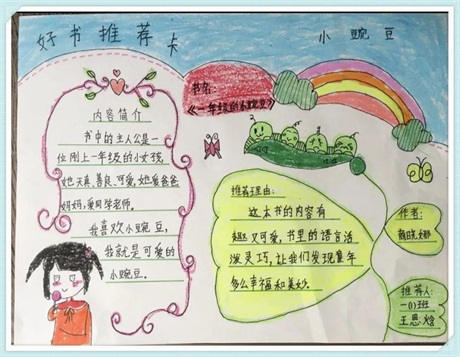 好书推荐卡
小豌豆
书名:
《一年级的小豌豆》
内容简介
书中的主人公是一
位刚上一年级的小女孩,
她天真、善良、可爱,她爱爸爸
妈妈,爱同学老师。
我喜欢小豌豆,
我就是可爱的
小豌豆。
推荐理由:
这本书的内容有
趣又可爱,书里的语言活
泼灵巧,让我们发现童年
多么幸福和美妙。
作者:
推荐人:
一(1)班